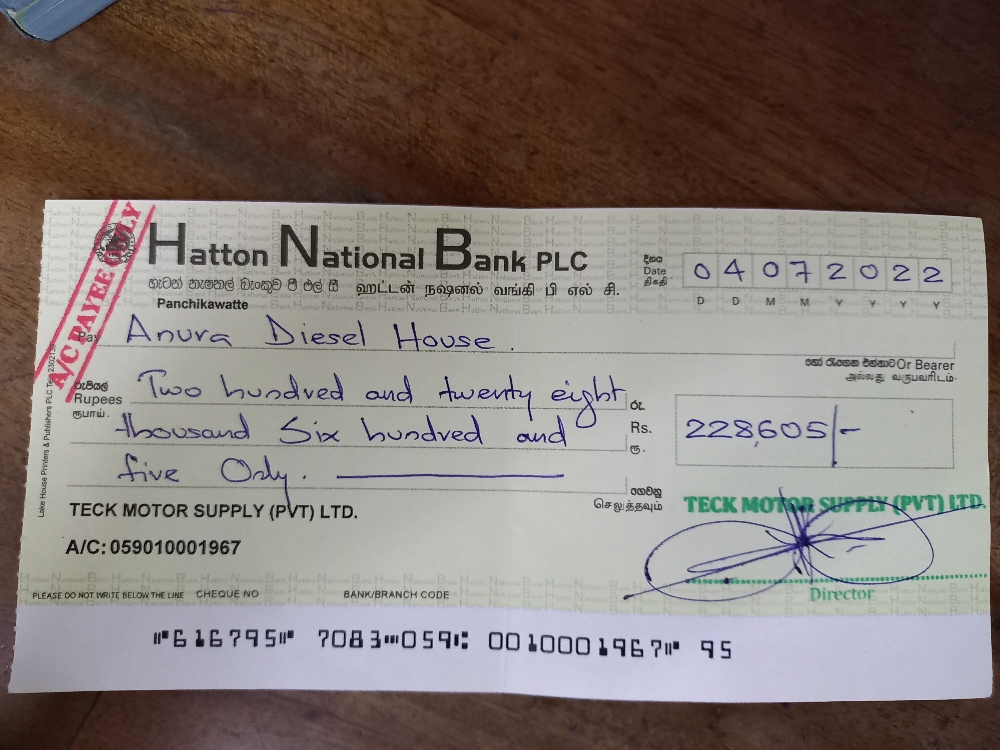 A/C PAYEE ONLY
Hatton National Bank PLC
හැටන් නැෂනල් බැංකුව පී එල් සී ஹட்டன் நஷனல் வங்கி பி எல் சி.
Panchikawatte
දිනය
Date
திகதி
0 4 0 7 2 0 2 2
D D M M Y Y Y Y
Pay Anura Diesel House.
හෝ රැගෙන එන්නාට Or Bearer
அல்லது வருபவரிடம்
රුපියල්
Rupees
ரூபாய்.
Two hundred and twenty eight
thousand Six hundred and
five Only.
රු.
Rs.
ரூ.
228,605/-
ගෙවනු
செலுத்தவும்
TECK MOTOR SUPPLY (PVT) LTD.
A/C: 059010001967
TECK MOTOR SUPPLY (PVT) LTD.
Director
PLEASE DO NOT WRITE BELOW THE LINE CHEQUE NO BANK/BRANCH CODE
⑈616795⑈ 7083⑉059⑆ 0010001967⑈ 95
Lake House Printers & Publishers PLC